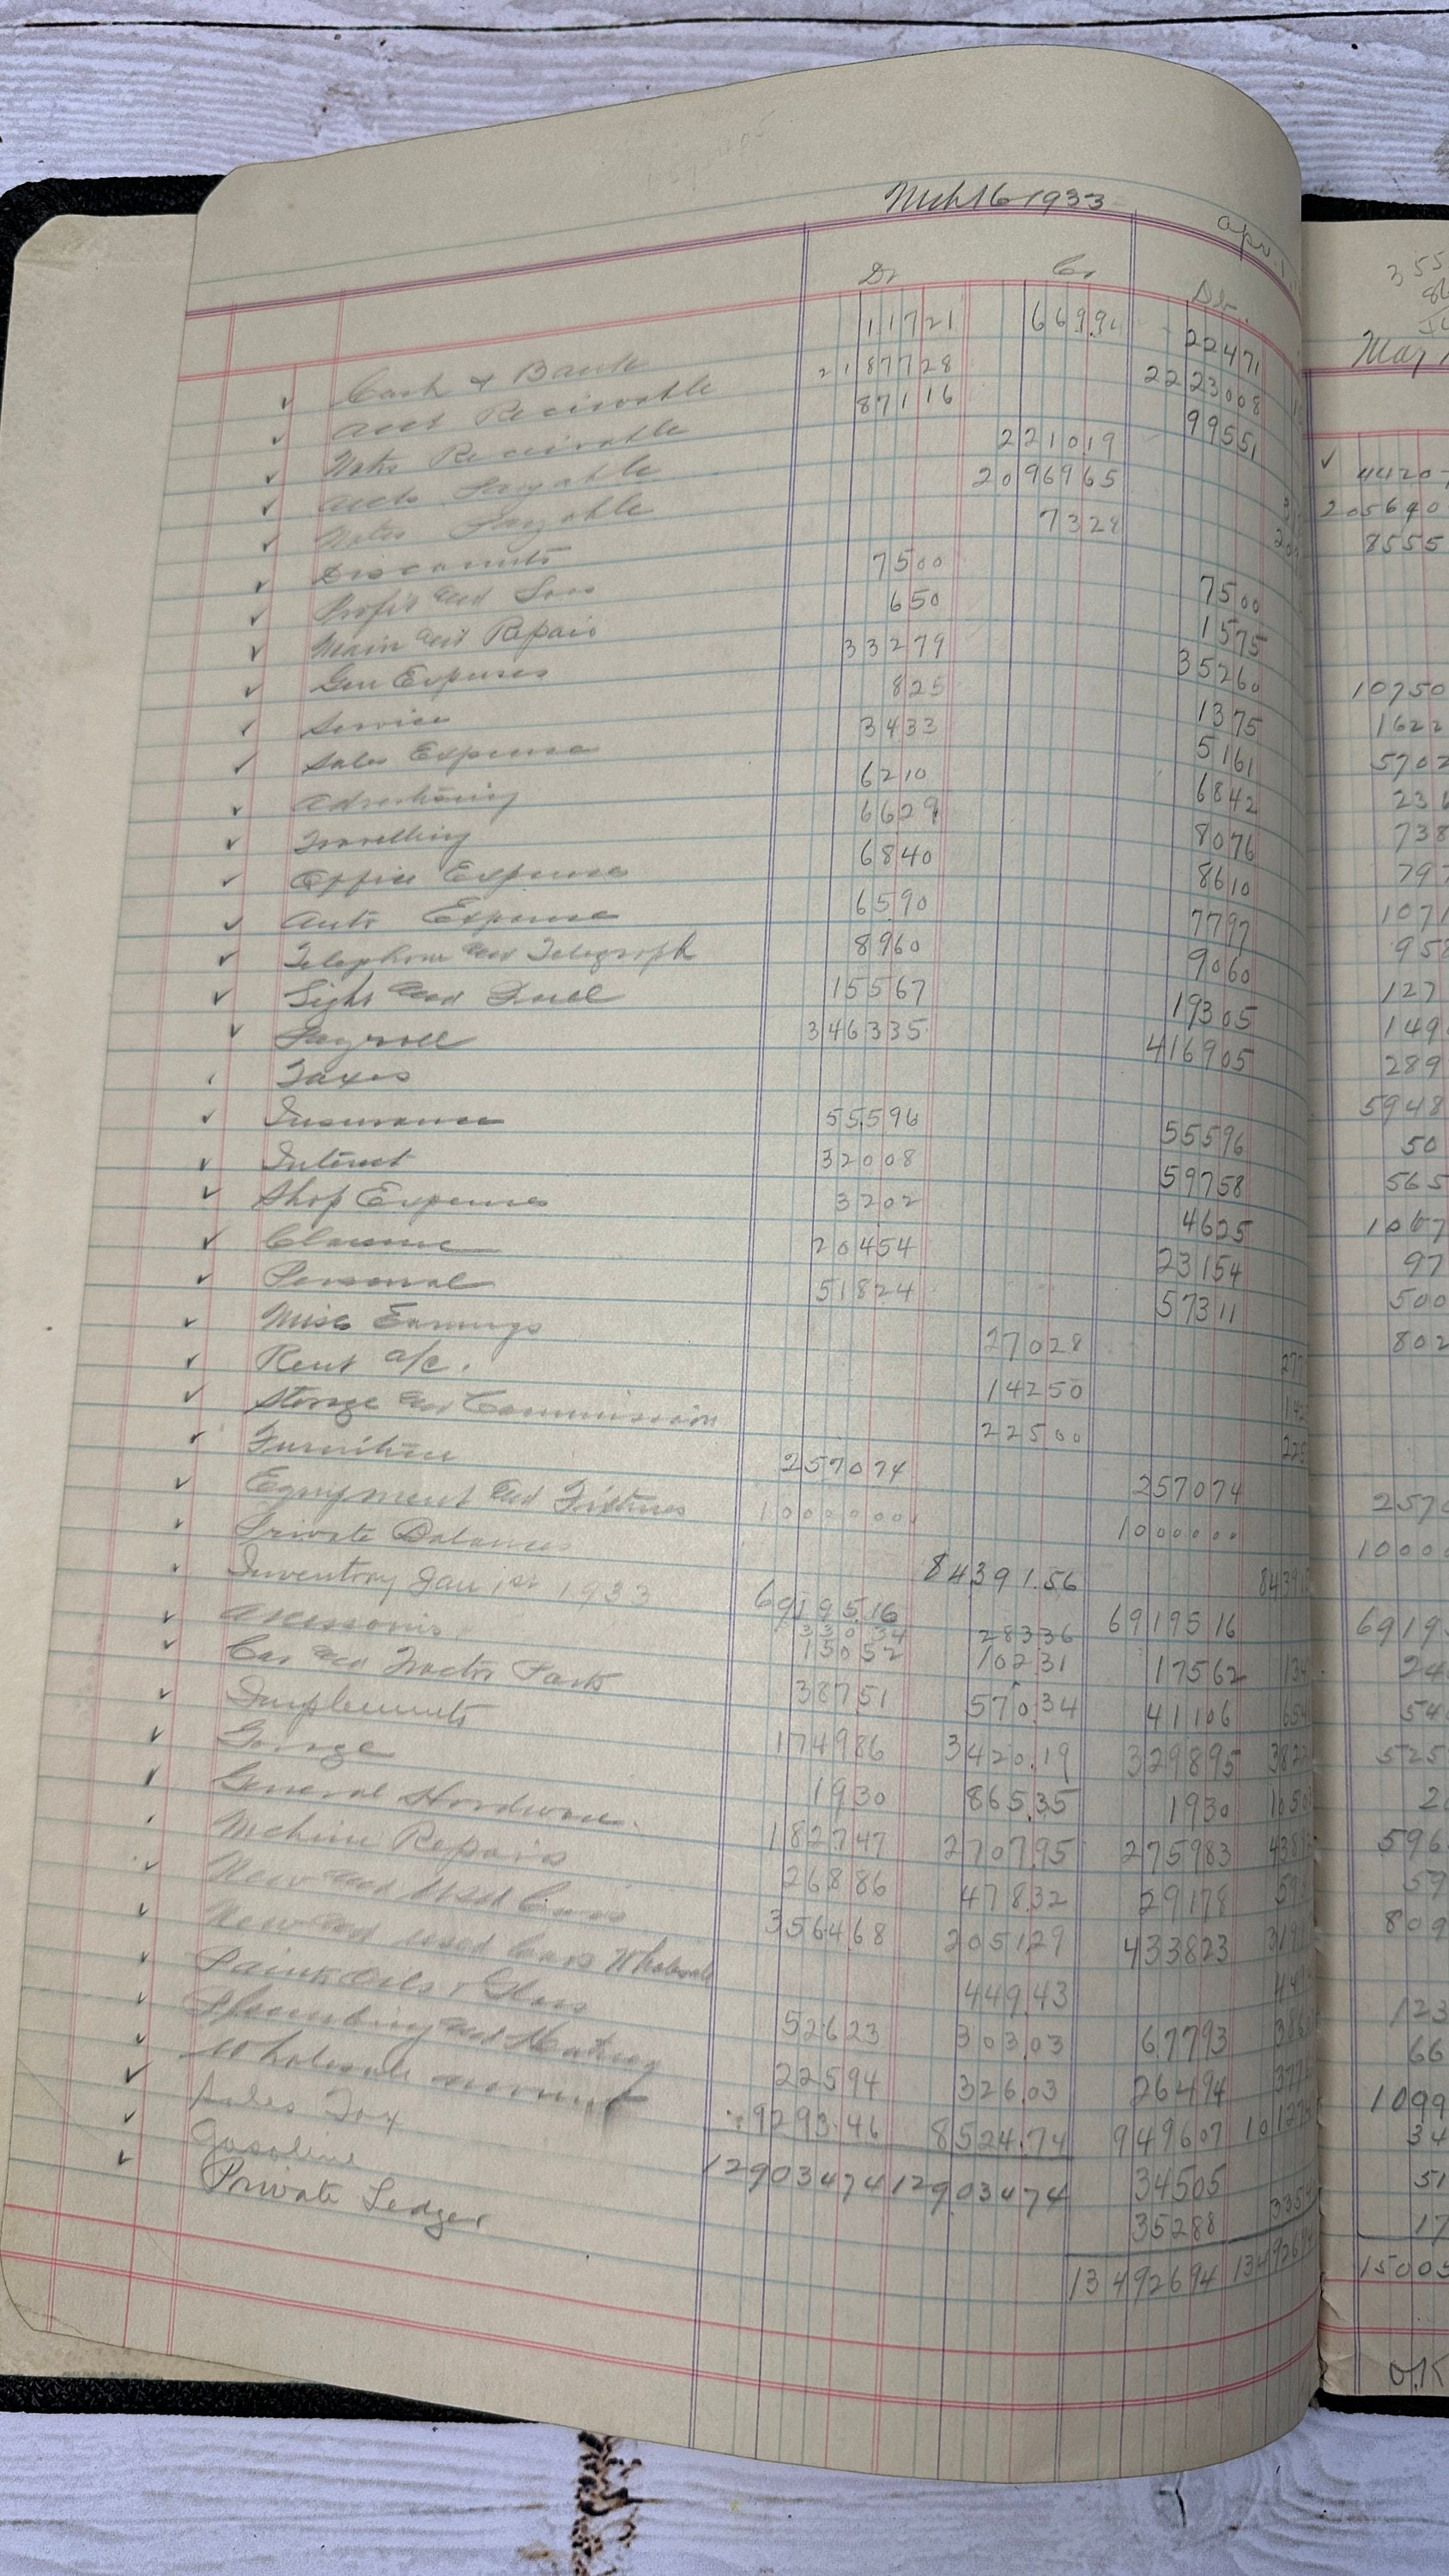 Mch 16 1933
Apr. 1
Dr Cr Db.
Cash & Bank 11721 66994 22471
Acct Recivable 2187728 2223008
Notes Receivable 87116 99551
Accts Payable 221019
Notes Payable 2096965
Discounts 7328
Profit and Loss 7500 7500
Main and Repair 650 1575
Gen Expenses 33279 35260
Service 825 1375
Sales Expense 3433 5161
Advertising 6210 6842
Travelling 6629 8076
Office Expense 6840 8610
Auto Expense 6590 7797
Telephone and Telegraph 8960 9060
Light and Fuel 15567 19305
Payroll 346335 416905
Taxes
Insurance 55596 55596
Interest 32008 59758
Shop Expense 3202 4625
20454 23154
Personal 51824 57311
Misc Earnings 27028
Rent a/c. 14250
Storage and Commission 22500
Furniture 257074 257074
Equipment and Fixtures 1000000 1000000
Private Balances 84391.56
Inventory Jan 1st 1933 6919516 6919516
Accessories 33034 28336
Car and Tractor Parts 15052 10231 17562
Implements 38751 57034 41106
174986 3420.19 329895
General Hardware 1930 865.35 1930
Mchine Repairs 182747 270795 275983
New and Used Cars 26886 47832 29178
New and used Cars Wholesale 356468 205129 433823
Paints Oils & Glass 449.43
Plumbing and Heating 52623 30303 67793
Wholesale account 22594 326.03 26494
Sales Tax 9293.46 8524.74 949607
Gasoline 12903474 12903474 34505
Private Ledger 35288
13492694 13492694
May
4420
205640
8555
10750
1622
5702
738
797
1071
958
127
149
289
5948
50
565
1067
97
500
802
2570
1000
6919
24
54
525
596
59
809
123
66
1099
34
51
17
15005
O.K